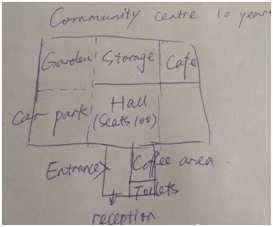 Community centre 10 year
Garden Storage Cafe
Car park Hall
(Seats 100)
Entrance Coffee area
Toilets
reception